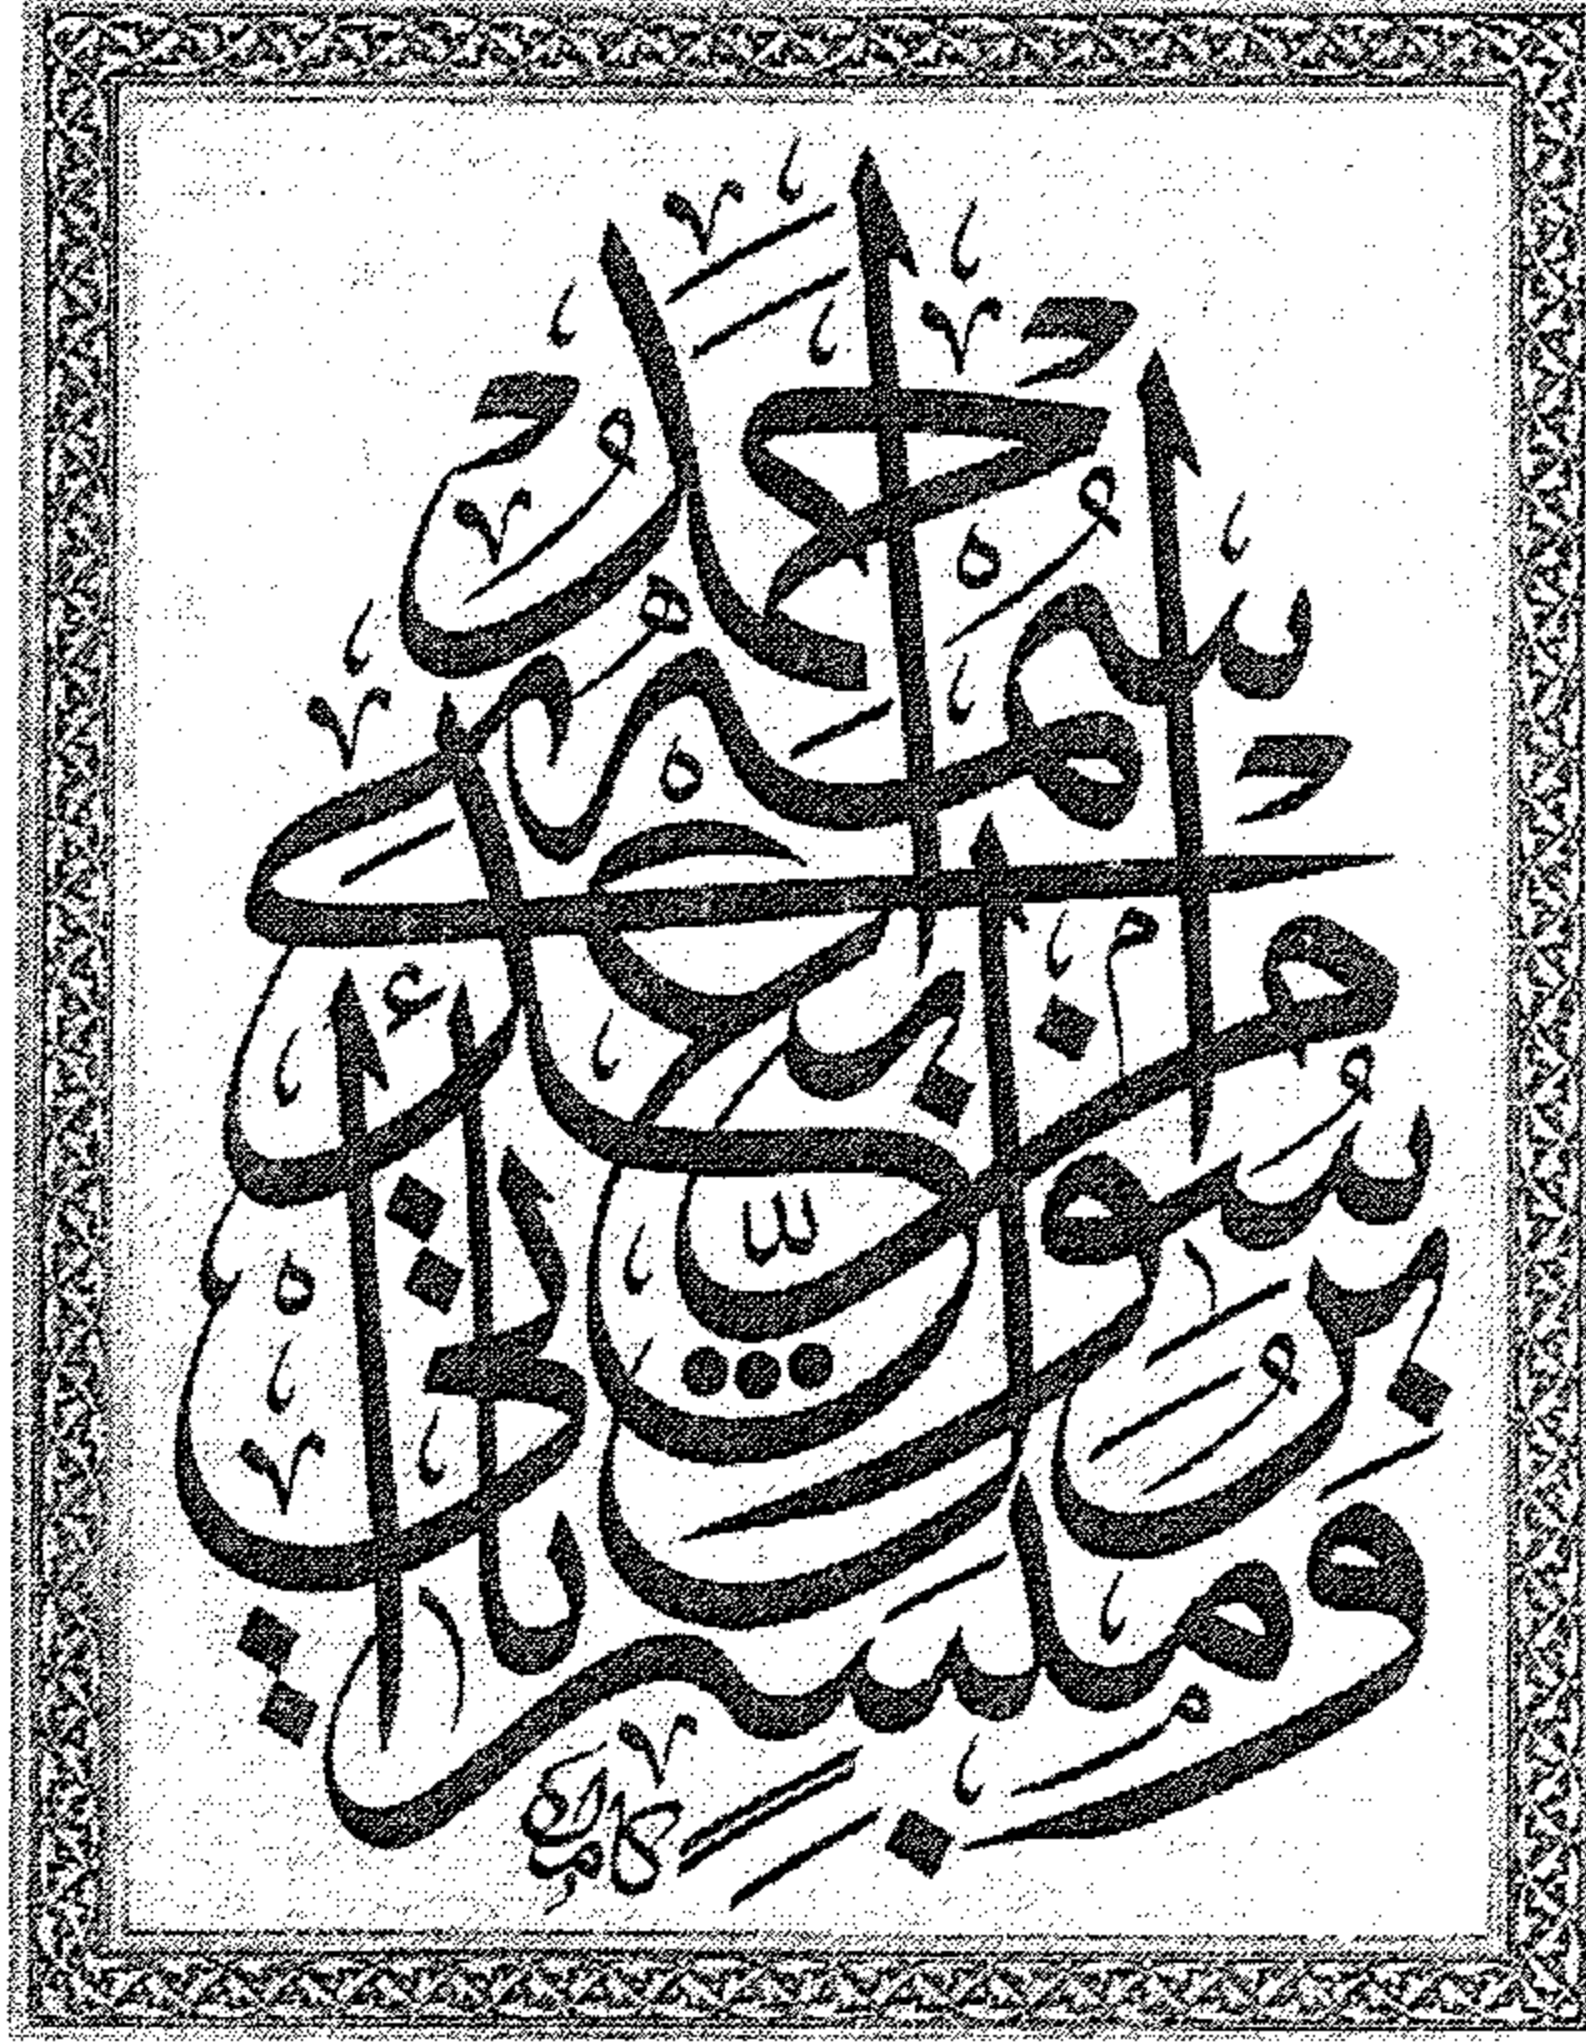 ومبشرا برسول يأتي
من بعدي
اسمه أحمد